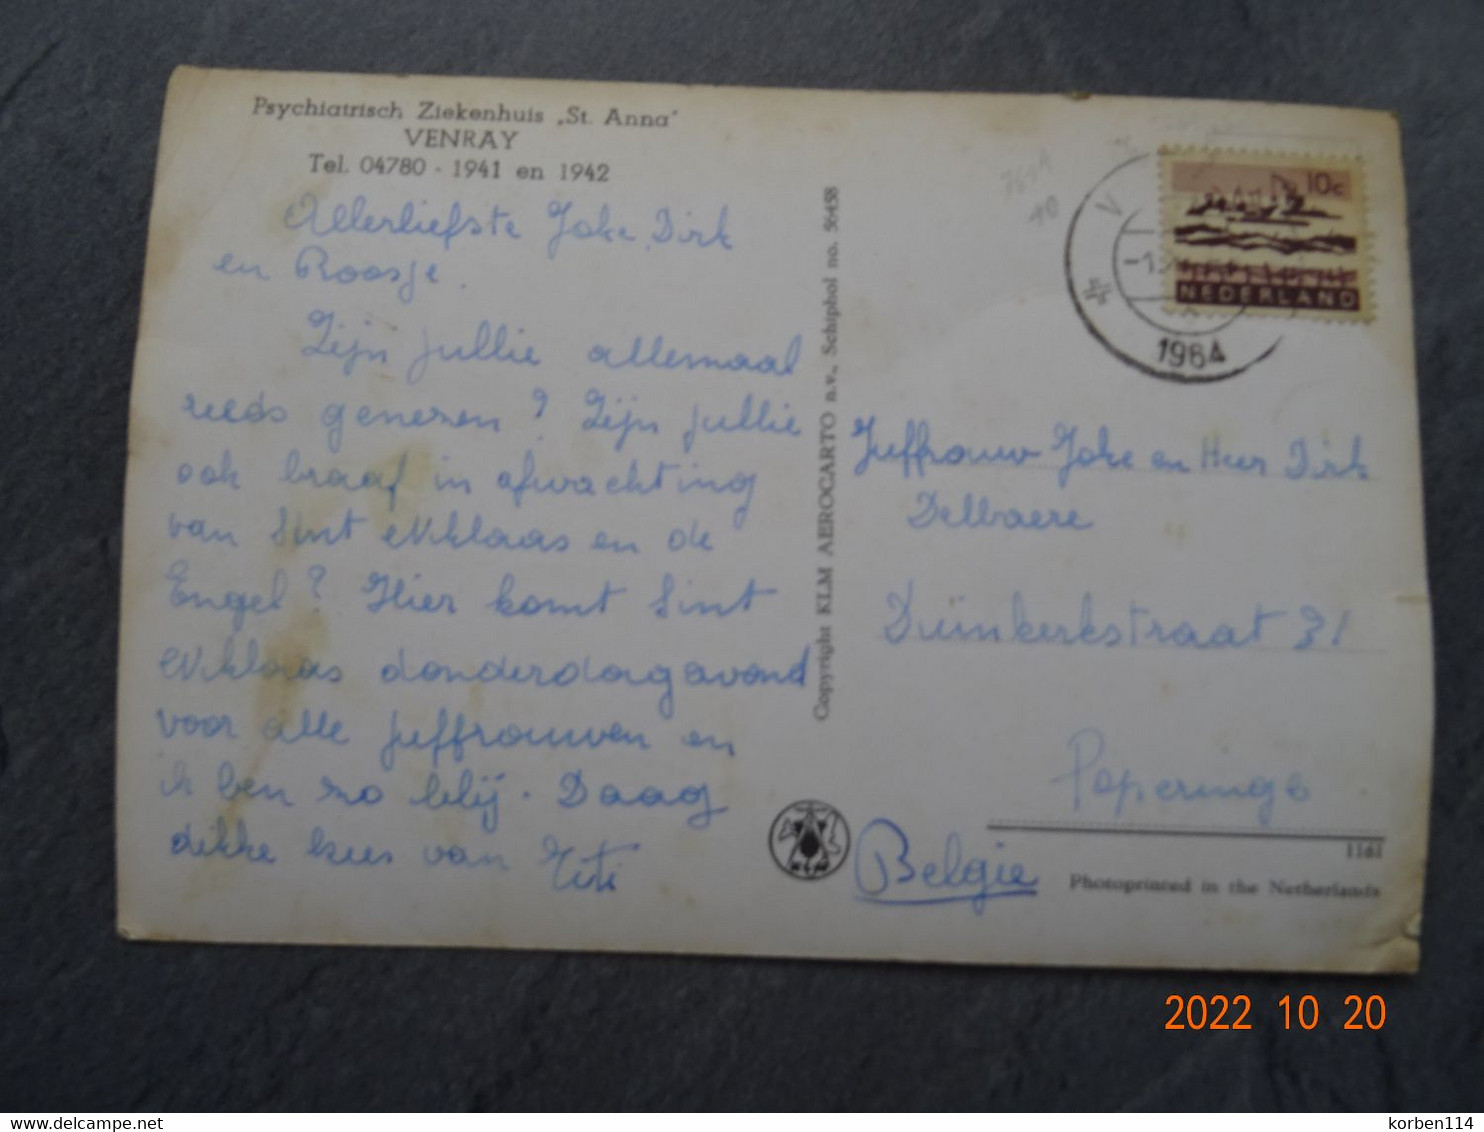 Psychiatrisch Ziekenhuis „St. Anna"
VENRAY
Tel. 04780 - 1941 en 1942
Allerliefste Joke, Dirk
en Roosje.
Zijn jullie allemaal
reeds genezen? Zijn jullie
ook braaf in afwachting
van Sint Niklaas en de
Engel? Hier komt Sint
Niklaas donderdagavond
voor alle juffrouwen en
ik ben zo blij. Daag
dikke kus van Titi
Copyright KLM AEROCARTO n.v., Schiphol no. 56458
10c
NEDERLAND
1964
Juffrouw Joke en Heer Dirk
Delbaere
Duinkerkstraat 31
Poperinge
Belgie
1161
Photoprinted in the Netherlands
2022 10 20
korben114